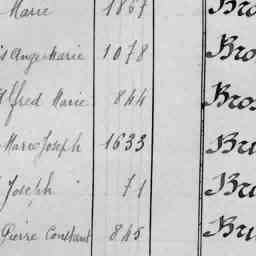 Marie 1867 Bro
Ange Marie 1078 Bro
lfred Marie 844 Bros
Marie Joseph 1633 Bru
Joseph 71 Bru
Pierre Constant 845 Bru